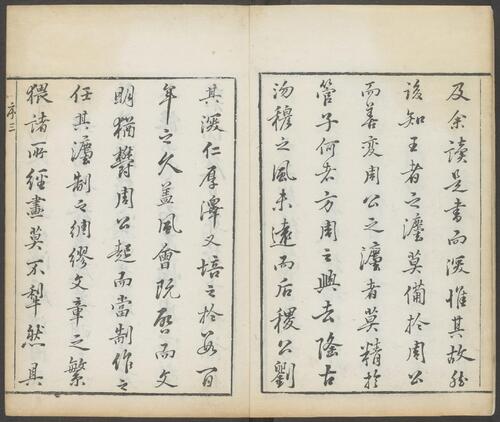 及余讀是書而深惟其故然
後知王者之灋莫備於周公
而善變周公之灋者莫精於
管子何者方周之興去隆古
沕穆之風未遠而后稷公劉
其深仁厚澤又培之於數百
年之久蓋風會既啓而文
明猶鬱周公起而當制作之
任其灋制之綢繆文章之繁
猥諸所經畫莫不犁然具
序三